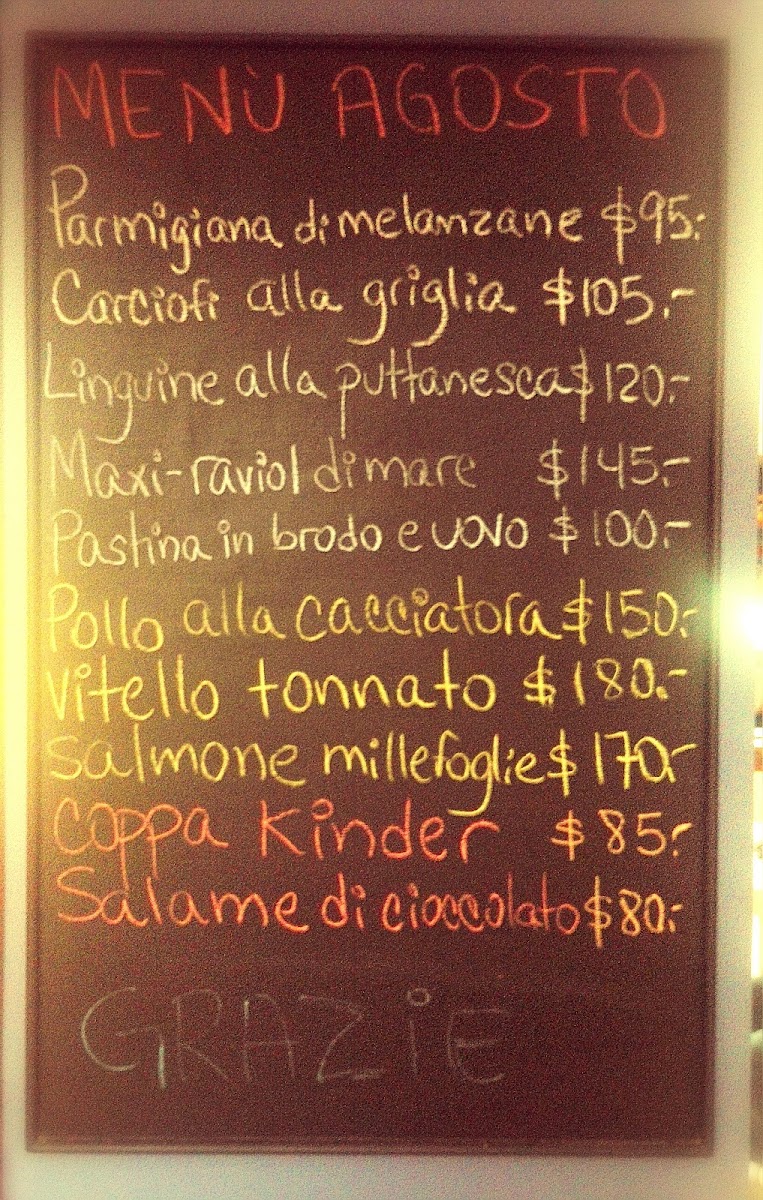 MENÙ AGOSTO
Parmigiana di melanzane $95.-
Carciofi alla griglia $105.-
Linguine alla puttanesca $120.-
Maxi-raviol di mare $145.-
Pastina in brodo e uovo $100.-
Pollo alla cacciatora $150.-
Vitello tonnato $180.-
Salmone millefoglie $170.-
Coppa Kinder $85.-
Salame di cioccolato $80.-
GRAZiE